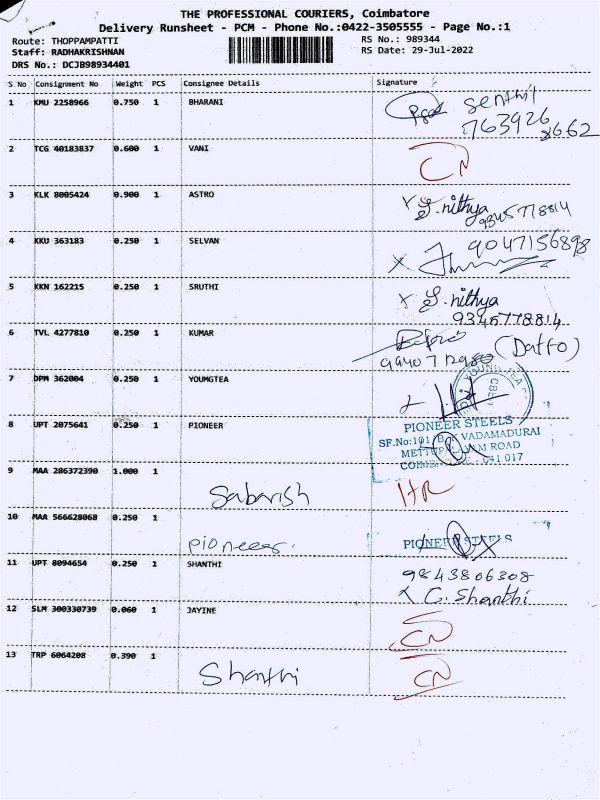 THE PROFESSIONAL COURIERS, Coimbatore
Delivery Runsheet - PCM - Phone No.:0422-3505555 - Page No.:1
Route: THOPPAMPATTI RS No.: 989344
Staff: RADHAKRISHNAN RS Date: 29-Jul-2022
DRS No.: DCJB98934401
S.No Consignment No Weight PCS Consignee Details Signature
1 KMU 2258966 0.750 1 BHARANI Senthil
763926 8662
2 TCG 40183837 0.600 1 VANI CN
3 KLK 8005424 0.900 1 ASTRO x S. nithya
9345778814
4 KKU 363183 0.250 1 SELVAN 9047156898
x
5 KKN 162215 0.250 1 SRUTHI x S. nithya
9345778814
6 TVL 4277810 0.250 1 KUMAR
7 DPM 362004 0.250 1 YOUMGTEA
8 UPT 2075641 0.250 1 PIONEER PIONEER STEELS
SF.No:101 VADAMADURAI
ROAD
641 017
9 MAA 286372390 1.000 1 Sabarish HR
10 MAA 566628068 0.250 1 pioneer. PIONEER STEELS
11 UPT 8094654 0.250 1 SHANTHI 9843806308
x G. Shanthi
12 SLM 300330739 0.060 1 JAYINE CN
13 TRP 6064208 0.390 1 Shanthi CN